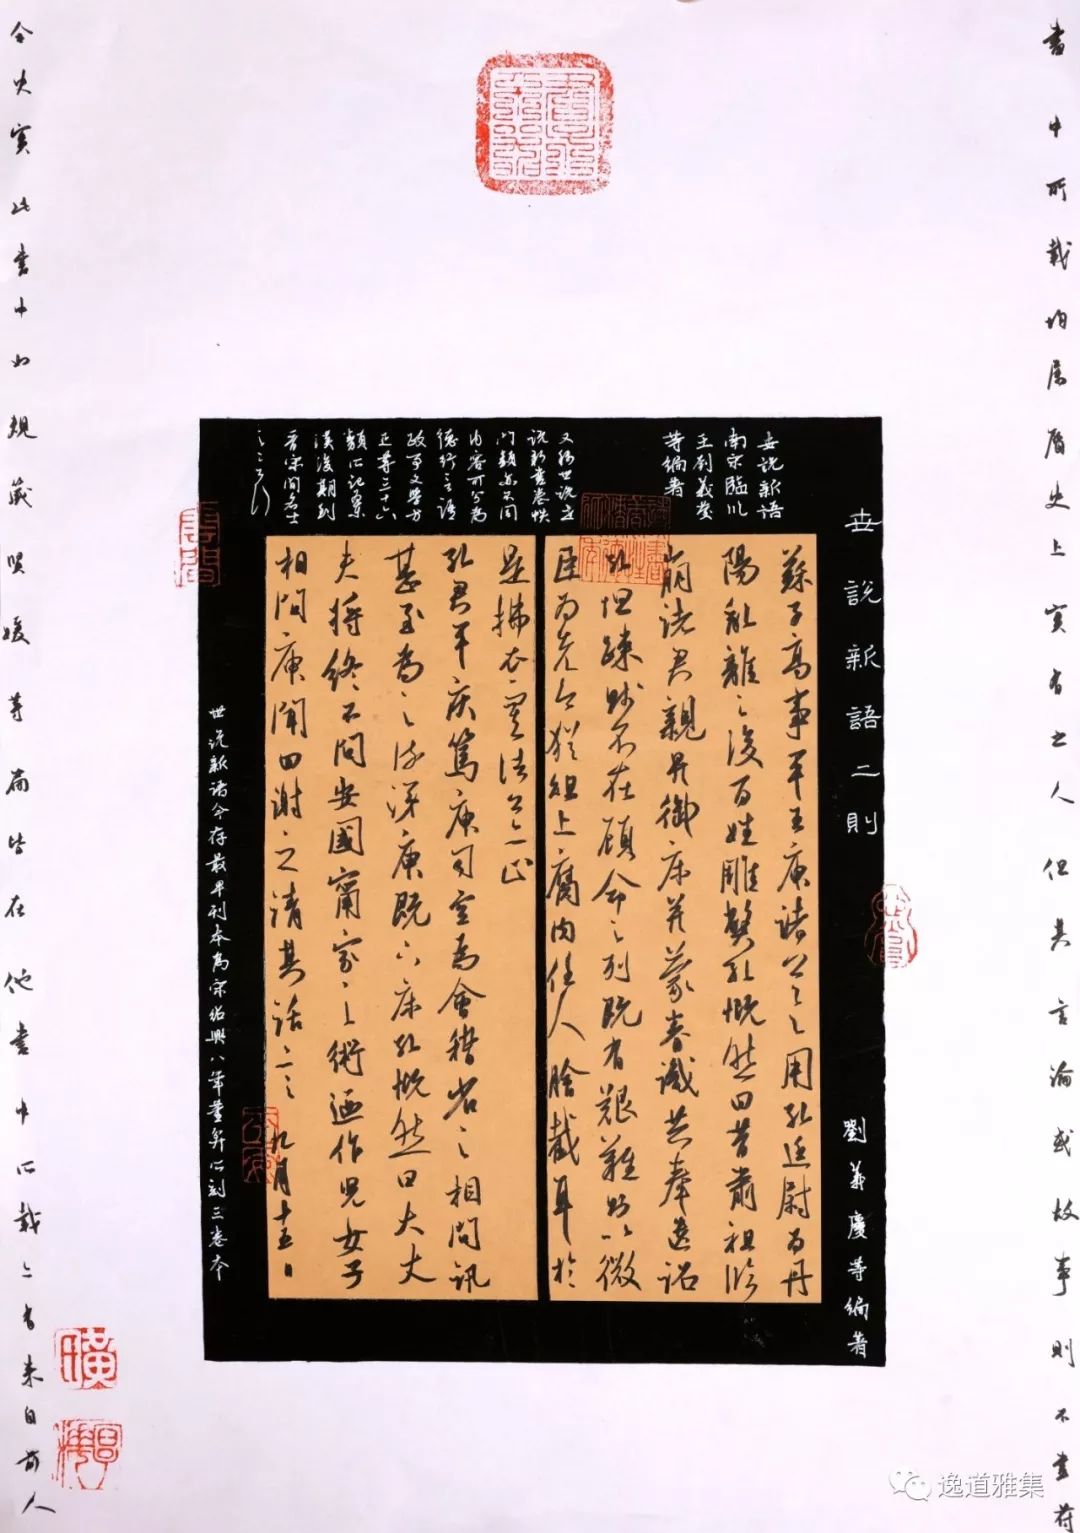 書中所載均屬曆史上實有之人但其言論或故事則不盡符
世說新語二則 劉義慶等編著
世說新語
南宋臨川
王劉義慶
等編著
又稱世說
說新書卷帙
門類亦不同
內容可分為
德行言語
政事文學方
正等三十六
類所記
漢後期到
晉宋間名士
之言行
蘇子高事平王庾諸公欲用孔廷尉為丹
陽亂離之後百姓雕弊孔慨然曰昔肅祖臨
崩諸君親昇御床並蒙眷識共奉遺詔
孔坦疎賤不在顧命之列既有艱難則以微
臣為先今猶俎上腐肉任人膾截耳於
是拂衣而去諸公亦止
孔君平疾篤庾司空為會稽省之相問訊
甚至為之流涕庾既下床孔慨然曰大丈
夫將終不問安國寧家之術迺作兒女子
相問庾聞回謝之請其話言 九月十五日
世説新语今存最早刊本為宋绍興八年董弅所刻三卷本
合史實此書中如規箴賢媛等篇皆在他書中所載亦有来自前人
逸道雅集